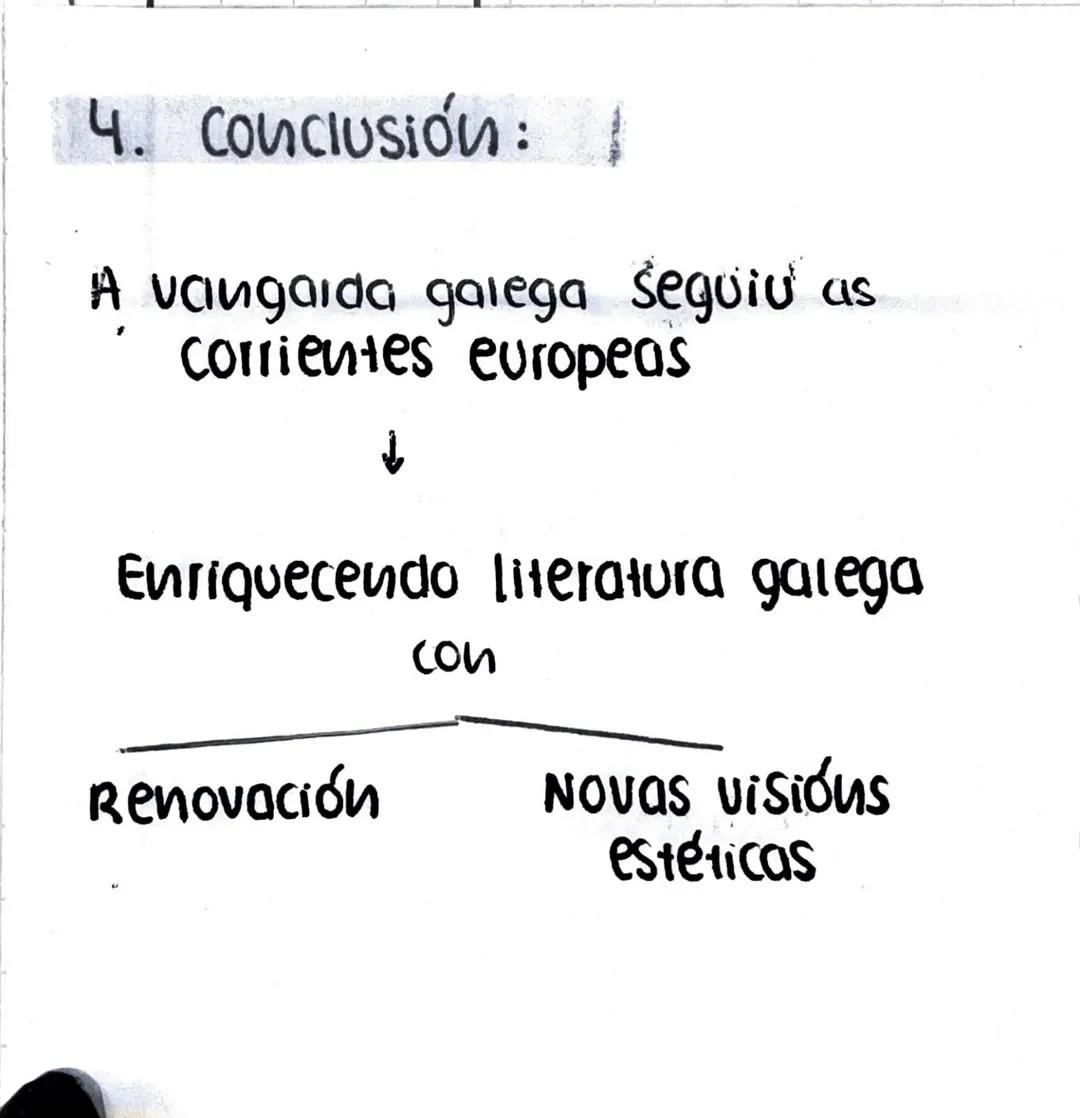 4. Conclusión:
A vangarda galega seguiu as
corrientes europeas
↓
Enriquecendo literatura galega
con
Renovación Novas visións
estéticas